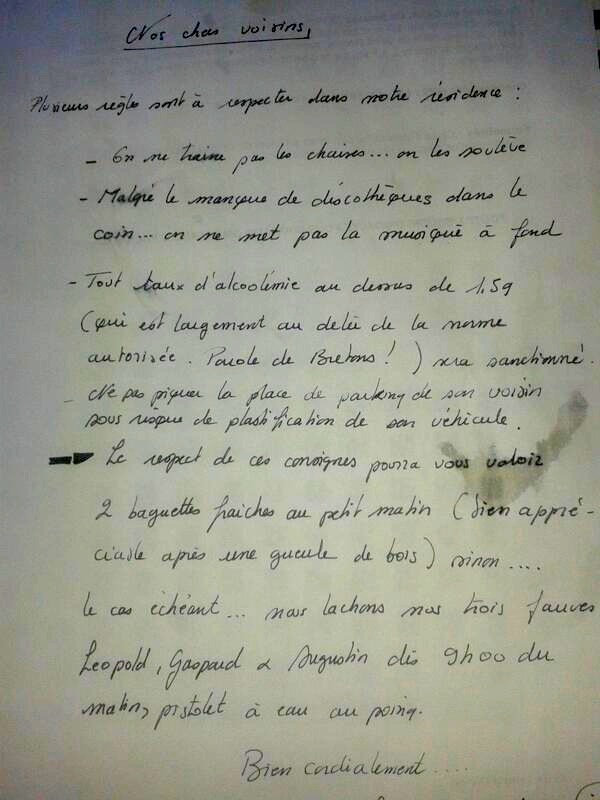 Nos chers voisins,
Plusieurs règles sont à respecter dans notre résidence :
- On ne traine pas les chaises... on les soulève
- Malgré le manque de discothèques dans le
coin... on ne met pas la musique à fond
- Tout taux d'alcoolémie au dessus de 1.5g
(qui est largement au delà de la norme
autorisée. Parole de Bretons ! ) sera sanctionné.
- Ne pas piquer la place de parking de son voisin
sous risque de plastification de son véhicule.
Le respect de ces consignes pourra vous valoir
2 baguettes fraiches au petit matin (bien appré-
ciable après une gueule de bois) sinon ....
le cas échéant... nous lachons nos trois fauves
Leopold, Gaspard & Augustin dès 9h00 du
matin, pistolet à eau au poing.
Bien cordialement ....